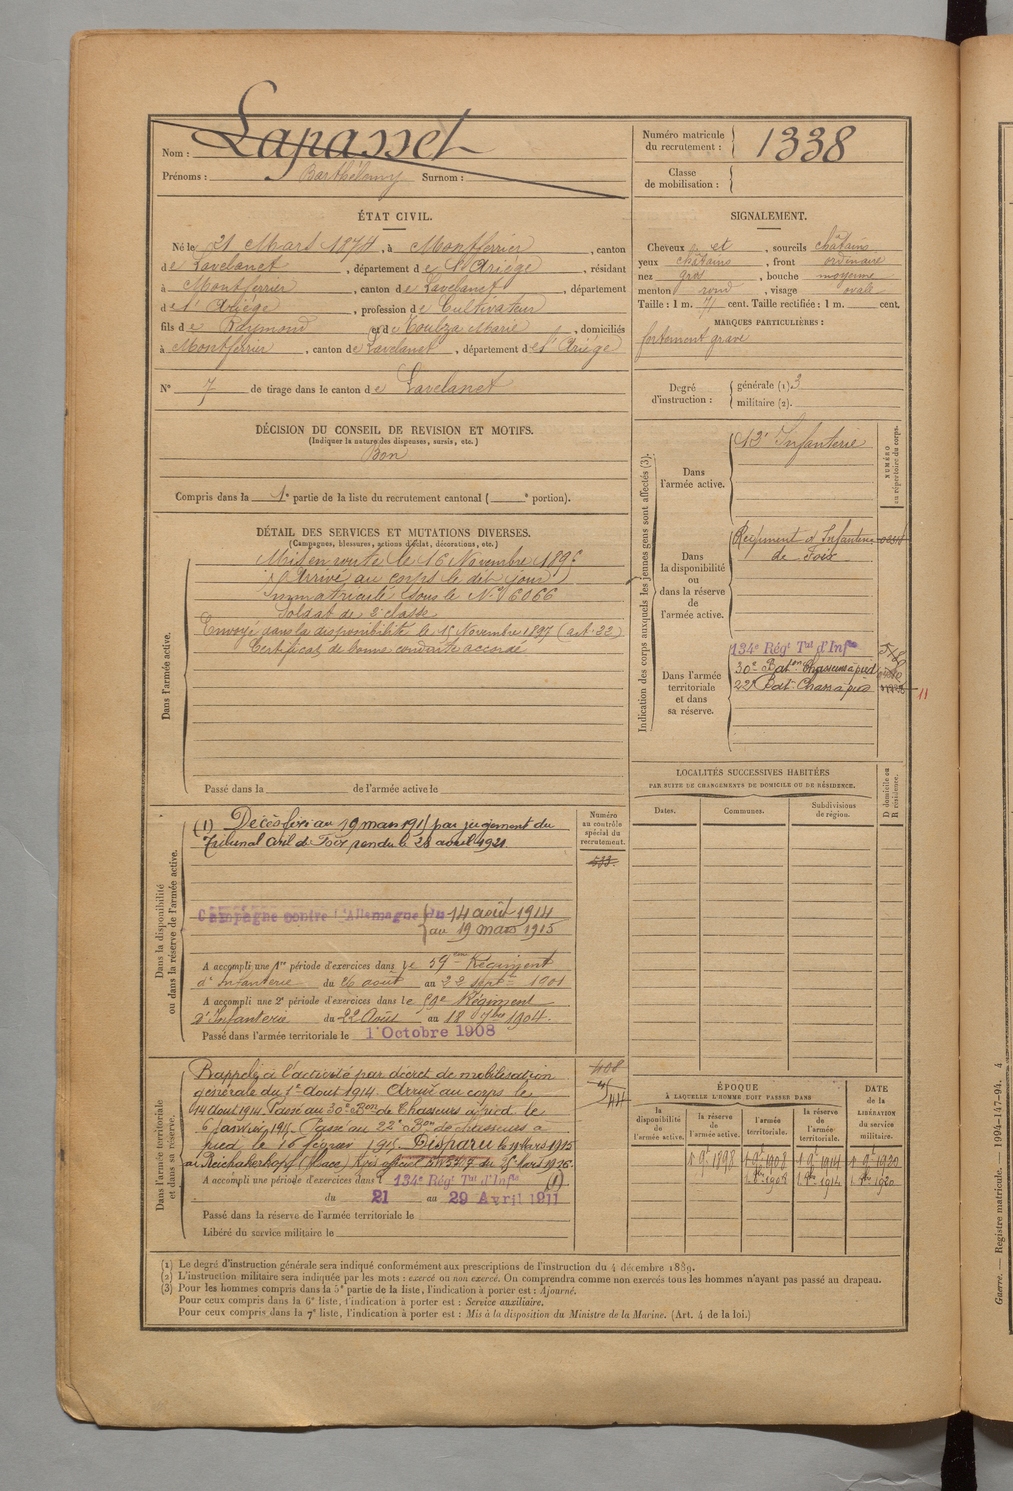 Nom : Lapasset
Prénoms : Barthélemy Surnom :
Numéro matricule du recrutement : 1338
Classe de mobilisation :
ÉTAT CIVIL.
Né le 21 Mars 1874, à Montferrier, canton
de Lavelanet, département de l'Ariège, résidant
à Montferrier, canton de Lavelanet, département
de l'Ariège, profession de Cultivateur
fils de Raymond et de Toulza Marie, domiciliés
à Montferrier, canton de Lavelanet, département de l'Ariège
N° 7 de tirage dans le canton de Lavelanet
SIGNALEMENT.
Cheveux et, sourcils châtains
yeux châtains, front ordinaire
nez gros, bouche moyenne
menton rond, visage ovale
Taille : 1 m. 71 cent. Taille rectifiée : 1 m. cent.
MARQUES PARTICULIÈRES :
fortement gravé
Degré d'instruction : générale (1). 3
militaire (2).
DÉCISION DU CONSEIL DE REVISION ET MOTIFS.
(Indiquer la nature des dispenses, sursis, etc.)
Bon
Compris dans la 1e partie de la liste du recrutement cantonal ( e portion).
DÉTAIL DES SERVICES ET MUTATIONS DIVERSES.
(Campagnes, blessures, actions d'éclat, décorations, etc.)
Dans l'armée active.
Mis en route le 16 Novembre 1895
Arrivé au corps le dit jour
Immatriculé sous le N° 6066
Soldat de 2e classe
Envoyé dans la disponibilité le 15 Novembre 1897 (art. 22)
Certificat de bonne conduite accordé
Passé dans la de l'armée active le
Indication des corps auxquels les jeunes gens sont affectés (3).
NUMÉRO au répertoire du corps.
Dans l'armée active.
13e Infanterie
Dans la disponibilité ou dans la réserve de l'armée active.
Régiment d'Infanterie
de Foix
Dans l'armée territoriale et dans sa réserve.
134e Régt Tal d'Infie
30e Baton Chasseurs à pied
22e Bat. Chass à pied
11
LOCALITÉS SUCCESSIVES HABITÉES
PAR SUITE DE CHANGEMENTS DE DOMICILE OU DE RÉSIDENCE.
Dates. Communes. Subdivisions de région. D. domicile ou R. résidence.
Dans la disponibilité ou dans la réserve de l'armée active.
Numéro au contrôle spécial du recrutement.
533
(1) Décès fixé au 19 mars 1915 par jugement du
Tribunal Civil de Foix rendu le 28 avril 1921
Campagne contre l'Allemagne du 14 août 1914
au 19 mars 1915
A accompli une 1re période d'exercices dans le 59eme Régiment
d'Infanterie du 26 août au 22 Septe 1901
A accompli une 2e période d'exercices dans le 59e Régiment
d'Infanterie du 22 Août au 18 7bre 1904.
Passé dans l'armée territoriale le 1 Octobre 1908
Dans l'armée territoriale et dans sa réserve.
408
Rappelé à l'activité par décret de mobilisation
générale du 1er Aout 1914. Arrivé au corps le
14 Aout 1914. Passé au 30e Bon de Chasseurs à pied le
6 Janvier 1915. Passé au 22e Bon de chasseurs à
pied le 16 février 1915. Disparu le 19 Mars 1915
au Reichakerkopf (Alsace)
A accompli une période d'exercices dans l 134e Régt Tal d'Infie (1)
du 21 au 29 Avril 1911
Passé dans la réserve de l'armée territoriale le
Libéré du service militaire le
ÉPOQUE
À LAQUELLE L'HOMME DOIT PASSER DANS
la disponibilité de l'armée active. la réserve de l'armée active. l'armée territoriale. la réserve de l'armée territoriale.
DATE de la LIBÉRATION du service militaire.
1 9e 1898 1 9e 1908 1 9e 1914 1 9e 1920
(1) Le degré d'instruction générale sera indiqué conformément aux prescriptions de l'instruction du 4 décembre 1889.
(2) L'instruction militaire sera indiquée par les mots : exercé ou non exercé. On comprendra comme non exercés tous les hommes n'ayant pas passé au drapeau.
(3) Pour les hommes compris dans la 5e partie de la liste, l'indication à porter est : Ajourné.
Pour ceux compris dans la 6e liste, l'indication à porter est : Service auxiliaire.
Pour ceux compris dans la 7e liste, l'indication à porter est : Mis à la disposition du Ministre de la Marine. (Art. 4 de la loi.)
Guerre. — Registre matricule. — 1994-147-94. 4